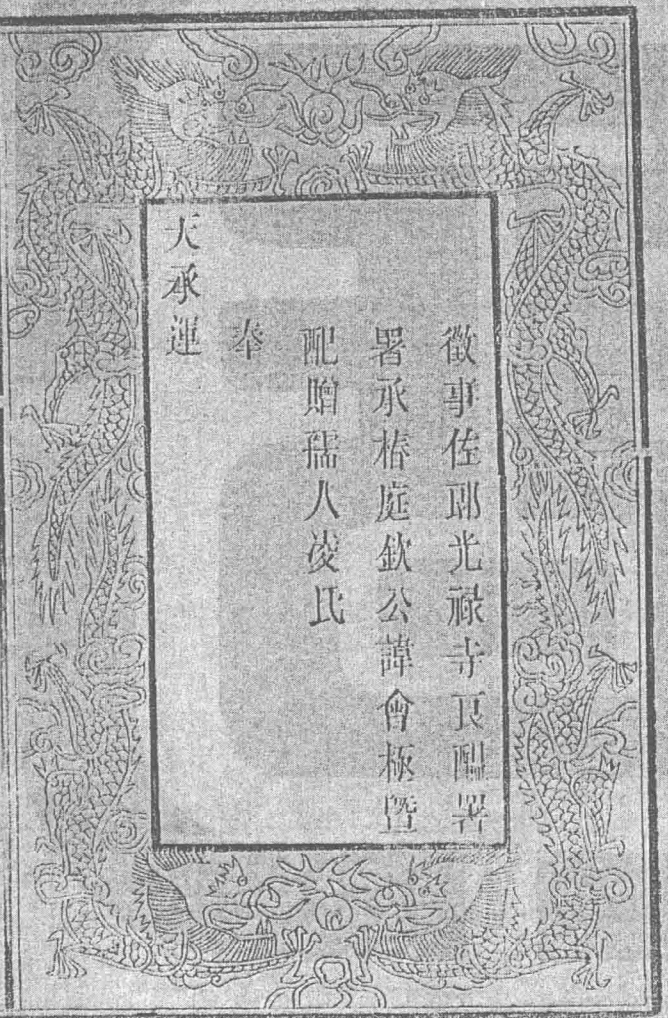 徵事佐郎光禄寺良醖署
署承椿庭欽公諱會極暨
配贈孺人凌氏
奉
天承運